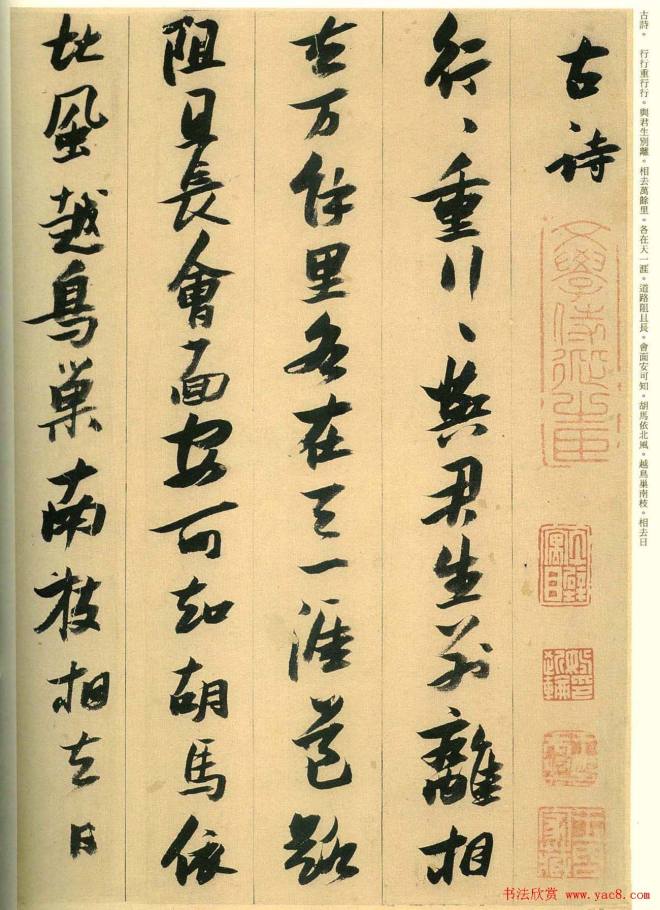 古詩。 行行重行行。與君生別離。相去萬餘里。各在天一涯。道路阻且長。會面安可知。胡馬依北風。越鳥巢南枝。相去日
古詩
行〻重行〻與君生別離相
去万余里各在天一涯道路
阻且長會面安可知胡馬依
北風越鳥巢南枝相去日
书法欣赏 www.yac8.com